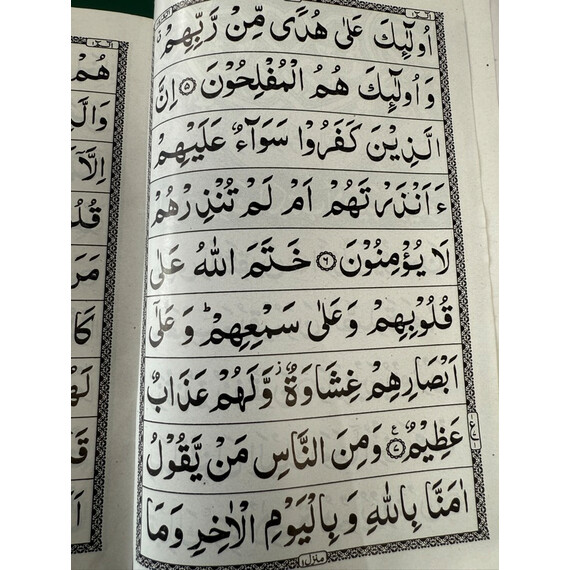 اُولٰٓئِكَ عَلٰى هُدًى مِّنْ رَّبِّهِمْ
وَاُولٰٓئِكَ هُمُ الْمُفْلِحُوْنَ ۵ اِنَّ
الَّذِيْنَ كَفَرُوْا سَوَآءٌ عَلَيْهِمْ
ءَاَنْذَرْتَهُمْ اَمْ لَمْ تُنْذِرْهُمْ
لَا يُؤْمِنُوْنَ ۶ خَتَمَ اللّٰهُ عَلٰى
قُلُوْبِهِمْ وَعَلٰى سَمْعِهِمْ ؕ وَعَلٰٓى
اَبْصَارِهِمْ غِشَاوَةٌ ؗ وَّلَهُمْ عَذَابٌ
عَظِيْمٌ ۷ وَمِنَ النَّاسِ مَنْ يَّقُوْلُ
اٰمَنَّا بِاللّٰهِ وَبِالْيَوْمِ الْاٰخِرِ وَمَا
منزل ۱